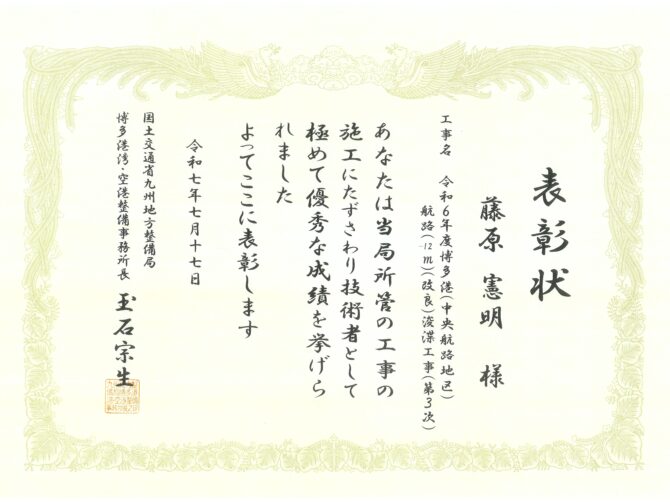 表彰状
藤原 憲明 様
工事名 令和6年度博多港(中央航路地区)
航路(-12m)(改良)浚渫工事(第3次)
あなたは当局所管の工事の
施工にたずさわり技術者として
極めて優秀な成績を挙げら
れました
よってここに表彰します
令和七年七月十七日
国土交通省九州地方整備局
博多港湾・空港整備事務所長 玉石宗生